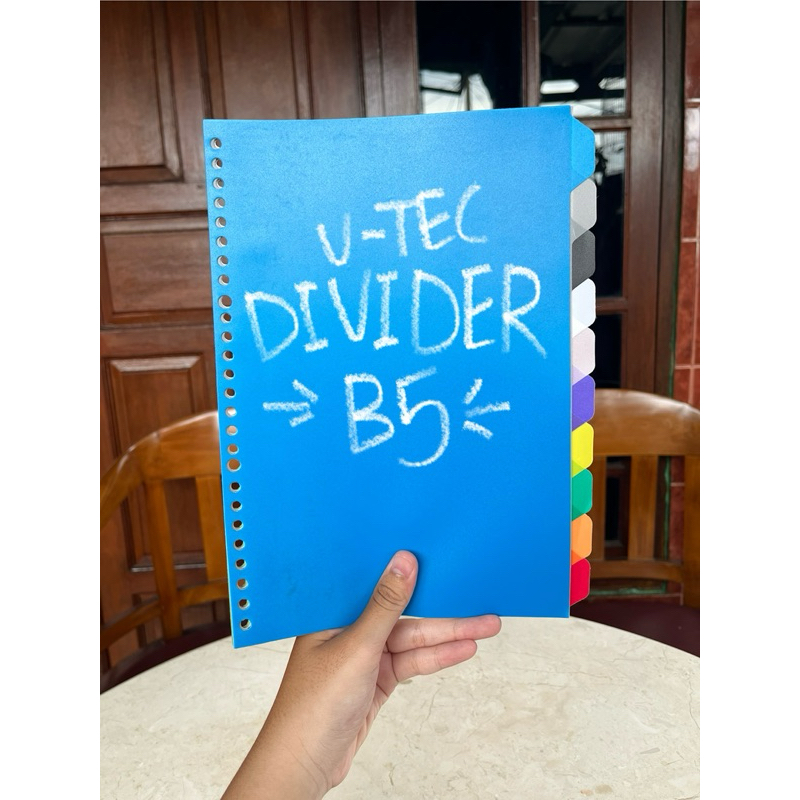 V-TEC
DIVIDER
B5